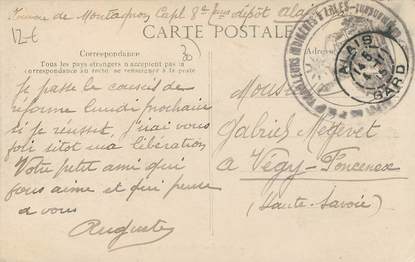 de Montagnon Capl 8e dépôt Alais
12-€
CARTE POSTALE
Correspondance
Tous les pays étrangers n'acceptent pas la
correspondance au recto, se renseigner à la poste
Adresse
ALAIS
GARD
Je passe le conseil de
réforme lundi prochain
si je réusset, j'irai vous
sitot ma libération
Votre petit ami qui
vous aime et qui pense
a vous
Auguste
Monsieur
Gabriel Mégevet
a Végy-Foncenex
(Haute-Savoie)